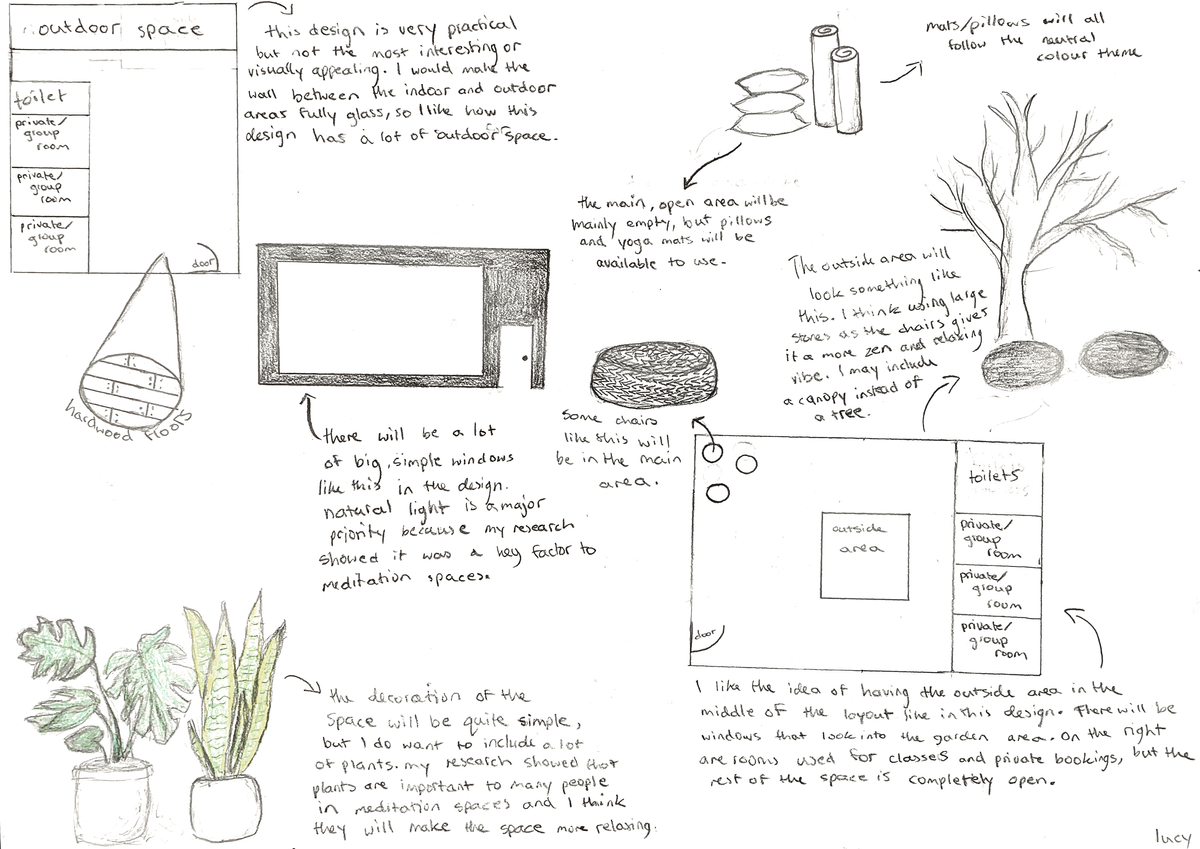 outdoor space
toilet
private/
group
room
private/
group
room
private/
group
room
door
hardwood floors
this design is very practical
but not the most interesting or
visually appealing. I would make the
wall between the indoor and outdoor
areas fully glass, so I like how this
design has a lot of outdoor space.
there will be a lot
of big, simple windows
like this in the design.
natural light is a major
priority because my research
showed it was a key factor to
meditation spaces.
mats/pillows will all
follow the neutral
colour theme
the main, open area will be
mainly empty, but pillows
and yoga mats will be
available to use.
The outside area will
look something like
this. I think using large
stones as the chairs gives
it a more zen and relaxing
vibe. I may include
a canopy instead of
a tree.
Some chairs
like this will
be in the main
area.
outside
area
door
toilets
private/
group
room
private/
group
room
private/
group
room
I like the idea of having the outside area in the
middle of the layout like in this design. There will be
windows that look into the garden area. On the right
are rooms used for classes and private bookings, but the
rest of the space is completely open.
the decoration of the
space will be quite simple,
but I do want to include a lot
of plants. my research showed that
plants are important to many people
in meditation spaces and I think
they will make the space more relaxing.
lucy